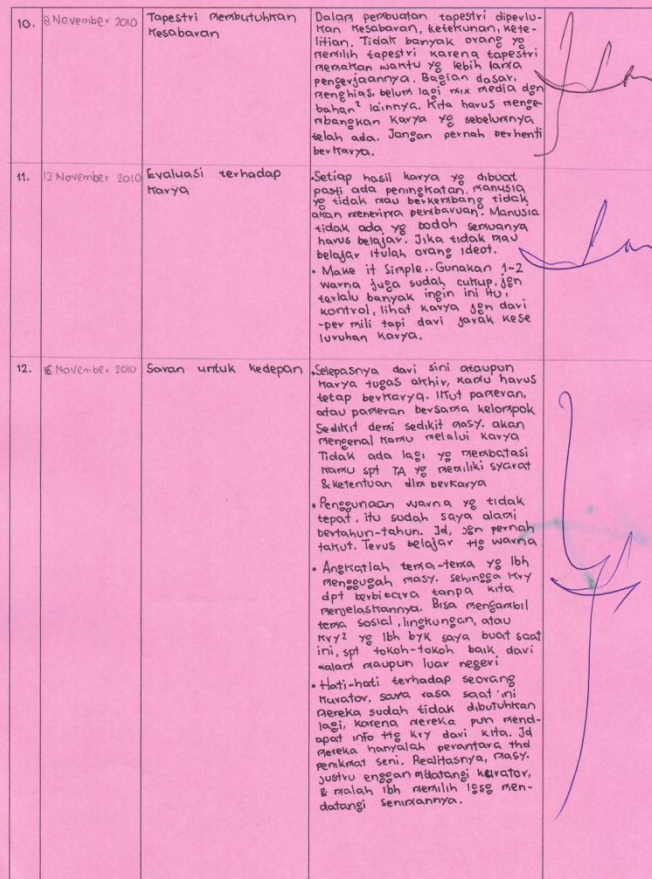 10. 8 November 2010 Tapestri Membutuhkan Kesabaran
Dalam pembuatan tapestri diperlu-
kan kesabaran, ketekunan, kete-
litian. Tidak banyak orang yg
memilih tapestri karena tapestri
memakan waktu yg lebih lama
pengerjaannya. Bagian dasar,
menghias, belum lagi mix media dgn
bahan² lainnya. Kita harus menge-
mbangkan karya yg sebelumnya
telah ada. Jangan pernah berhenti
berkarya.
11. 12 November 2010 Evaluasi terhadap Karya
• Setiap hasil karya yg dibuat
pasti ada peningkatan. Manusia
yg tidak mau berkembang tidak
akan menerima pembaruan. Manusia
tidak ada yg bodoh semuanya
harus belajar. Jika tidak mau
belajar itulah orang ideot.
• Make it Simple.. Gunakan 1-2
warna juga sudah cukup. jgn
terlalu banyak ingin ini itu,
kontrol, lihat karya jgn dari
-per mili tapi dari jarak kese
luruhan karya.
12. 16 November 2010 Saran untuk kedepan
• Selepasnya dari sini ataupun
karya tugas akhir, kamu harus
tetap berkarya. Ikut pameran,
atau pameran bersama kelompok
Sedikit demi sedikit masy. akan
mengenal kamu melalui karya
Tidak ada lagi yg membatasi
kamu spt TA yg memiliki syarat
& ketentuan dlm berkarya
• Penggunaan warna yg tidak
tepat, itu sudah saya alami
bertahun-tahun. Jd, jgn pernah
takut. Terus belajar ttg warna
• Angkatlah tema-tema yg lbh
menggugah masy. sehingga kry
dpt berbicara tanpa kita
menjelaskannya. Bisa mengambil
tema sosial, lingkungan, atau
kry² yg lbh byk saya buat saat
ini, spt tokoh-tokoh baik dari
dalam maupun luar negeri
• Hati-hati terhadap seorang
kurator, saya rasa saat ini
mereka sudah tidak dibutuhkan
lagi, karena mereka pun mend-
apat info ttg kry dari kita. Jd
mereka hanyalah perantara thd
penikmat seni. Realitasnya, masy.
justru enggan mdatangi kurator,
& malah lbh memilih lgsg men-
datangi senimannya.